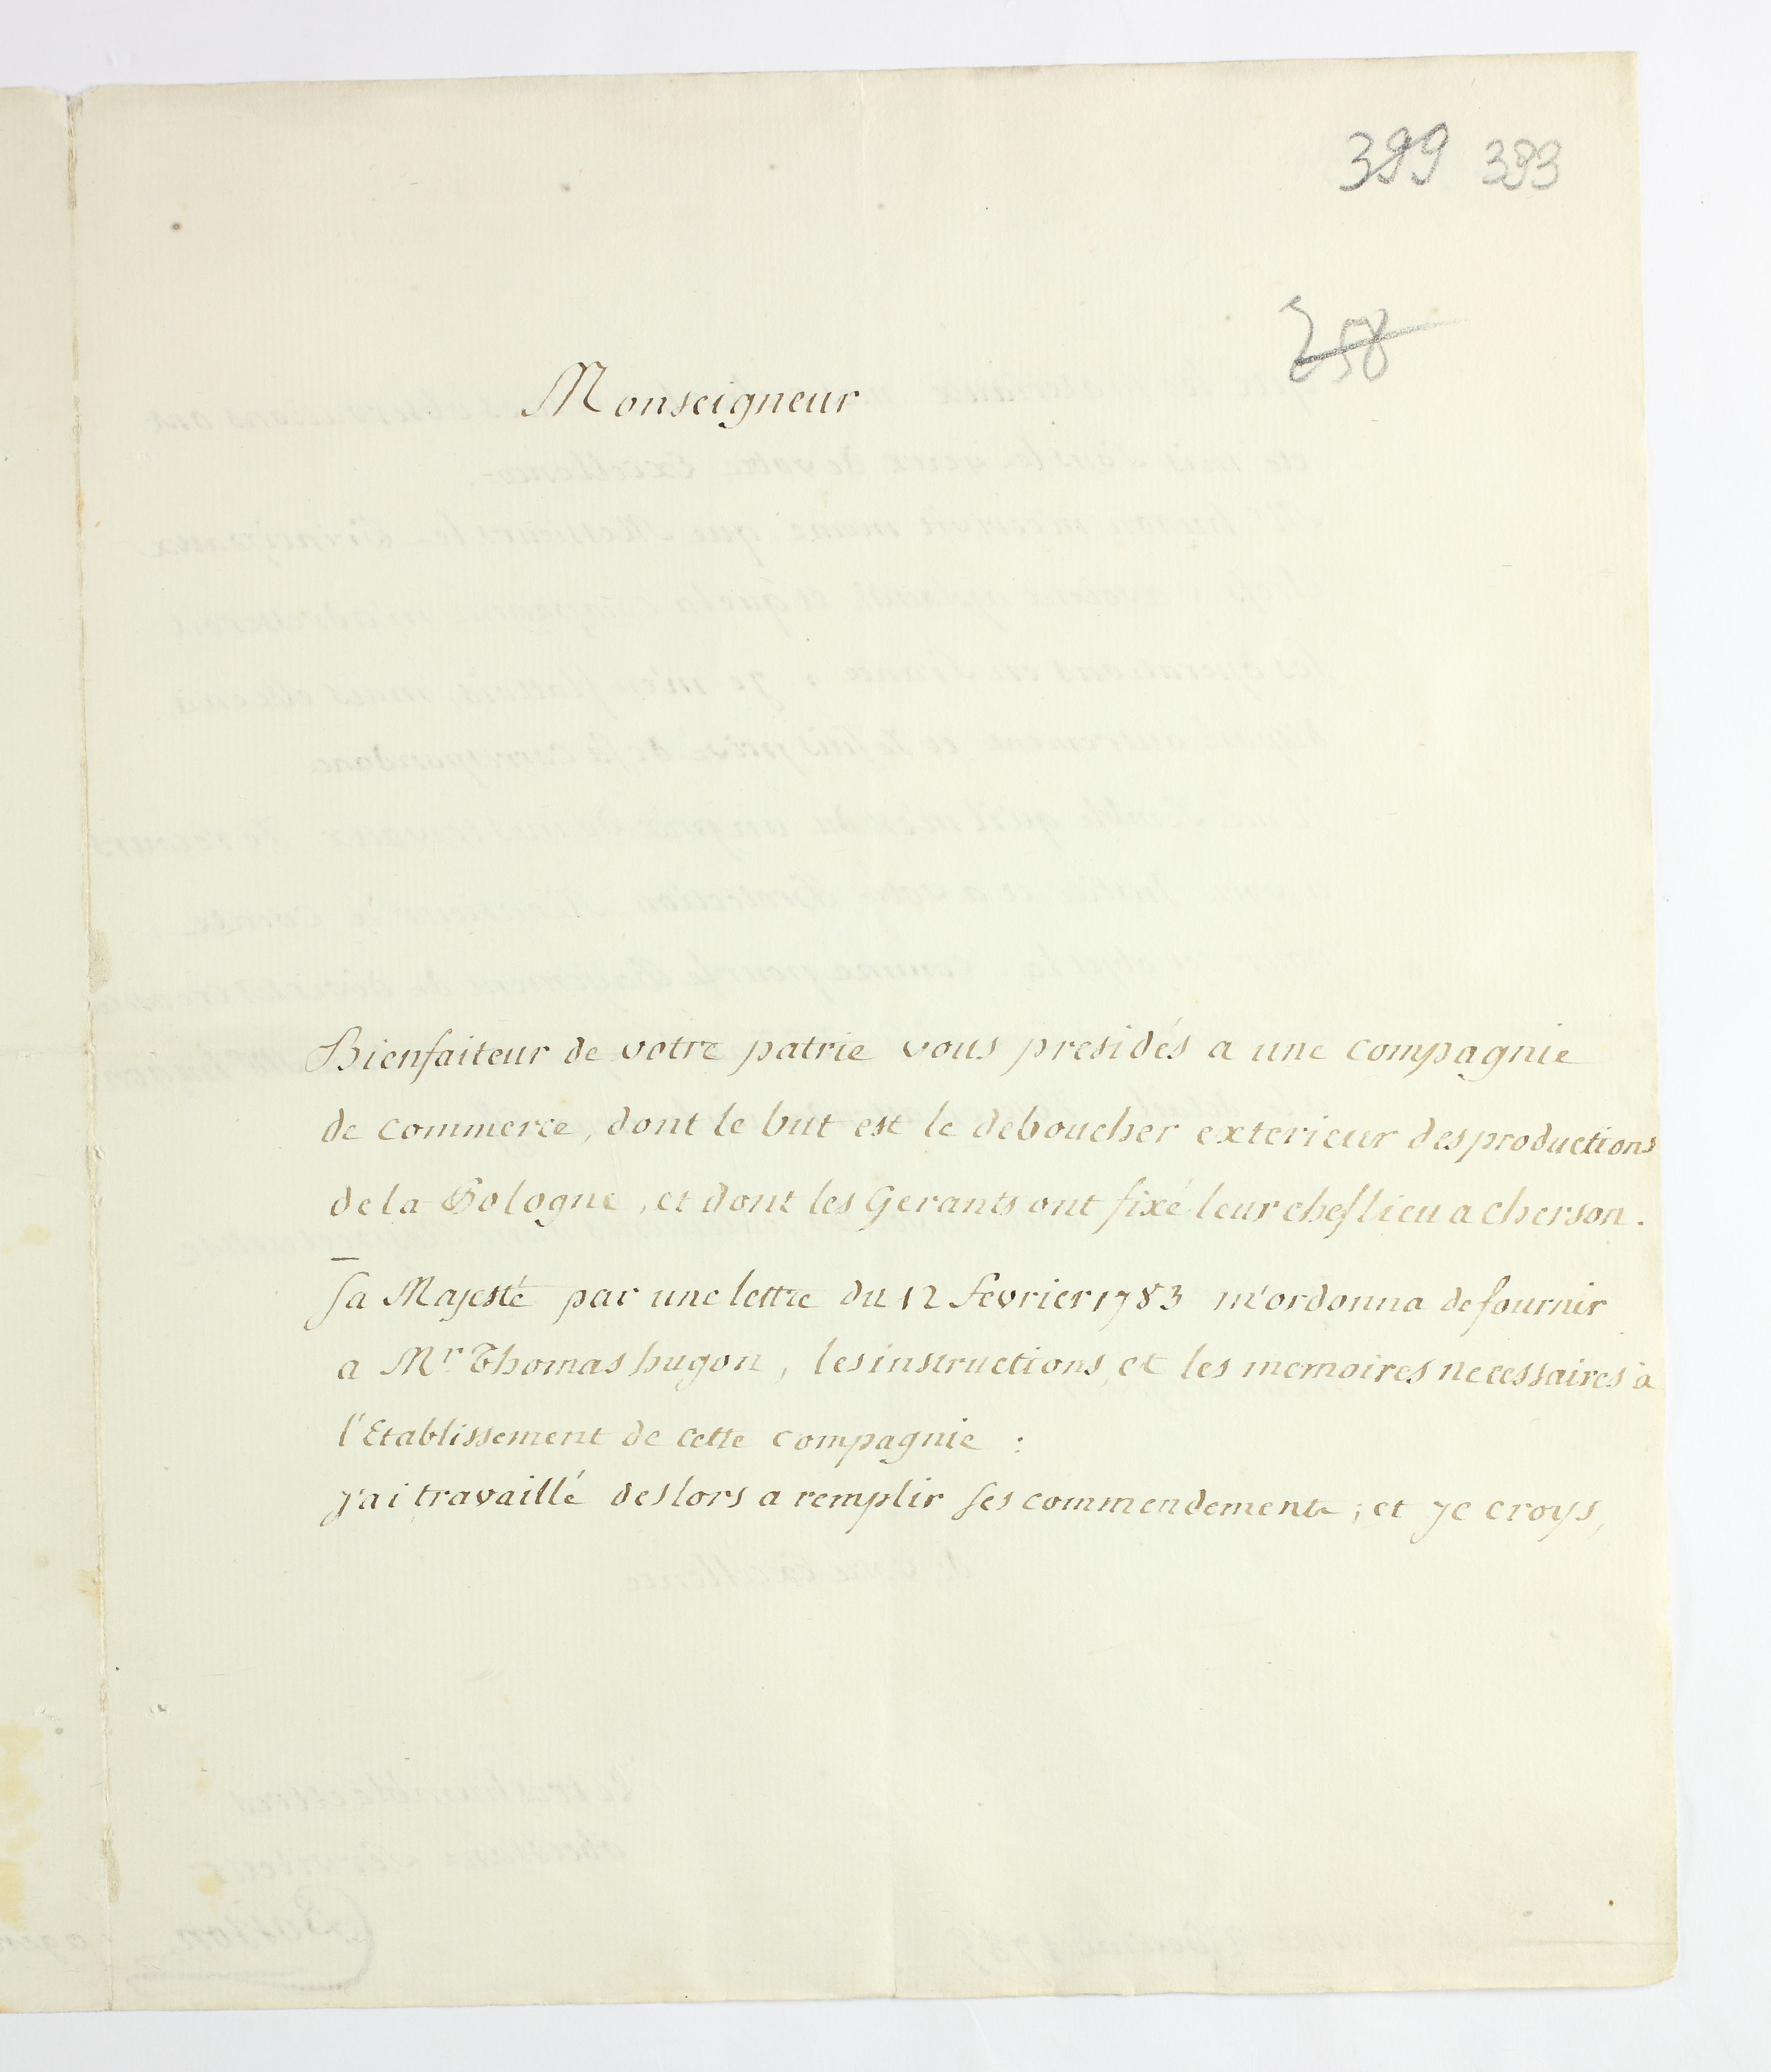 399 393
258
Monseigneur
Bienfaiteur de votre patrie vous presidés a une compagnie
de commerce, dont le but est le deboucher exterieur des productions
de la Pologne, et dont les Gerants ont fixé leur chef lieu a cherson.
Sa Majesté par une lettre du 12 fevrier 1783 m'ordonna de fournir
a Mr Thomas hugon, les instructions, et les memoires necessaires à
l'Etablissement de cette compagnie :
j'ai travaillé des lors a remplir ses commendements, et je croys,